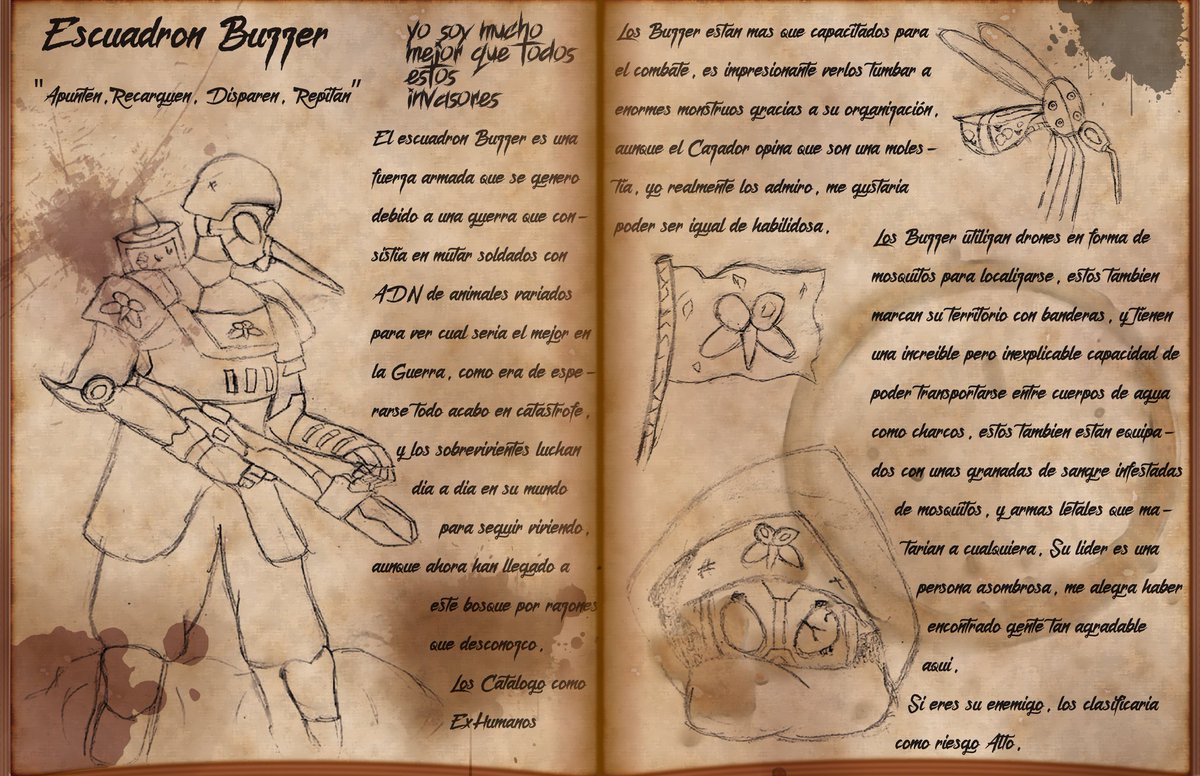 Escuadron Buzzer
"Apunten, Recarguen, Disparen, Repitan"
yo soy mucho
mejor que todos
estos
invasores
El escuadron Buzzer es una
fuerza armada que se genero
debido a una guerra que con-
sistia en mutar soldados con
ADN de animales variados
para ver cual seria el mejor en
la Guerra, como era de espe-
rarse todo acabo en catastrofe,
y los sobrevivientes luchan
dia a dia en su mundo
para seguir viviendo,
aunque ahora han llegado a
este bosque por razones
que desconozco,
Los Catalogo como
ExHumanos
Los Buzzer estan mas que capacitados para
el combate, es impresionante verlos tumbar a
enormes monstruos gracias a su organización,
aunque el Cazador opina que son una moles-
tia, yo realmente los admiro, me gustaria
poder ser igual de habilidosa,
Los Buzzer utilizan drones en forma de
mosquitos para localizarse, estos tambien
marcan su territorio con banderas, y tienen
una increible pero inexplicable capacidad de
poder transportarse entre cuerpos de agua
como charcos, estos tambien estan equipa-
dos con unas granadas de sangre infestadas
de mosquitos, y armas letales que ma-
tarian a cualquiera, Su lider es una
persona asombrosa, me alegra haber
encontrado gente tan agradable
aqui,
Si eres su enemigo, los clasificaria
como riesgo Alto,